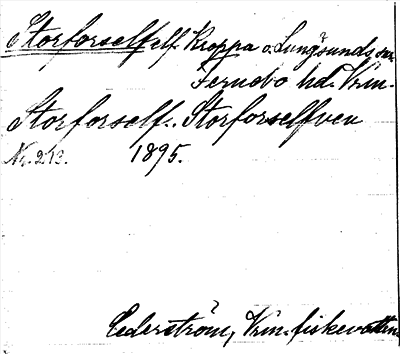 Storforselfelf. Kroppa o. Lungsunds sn.
Fernebo hd. Vrm.
Storforself.. Storforselfven
Nr. 213. 1895.
Cederström, Vrm. fiskevatten